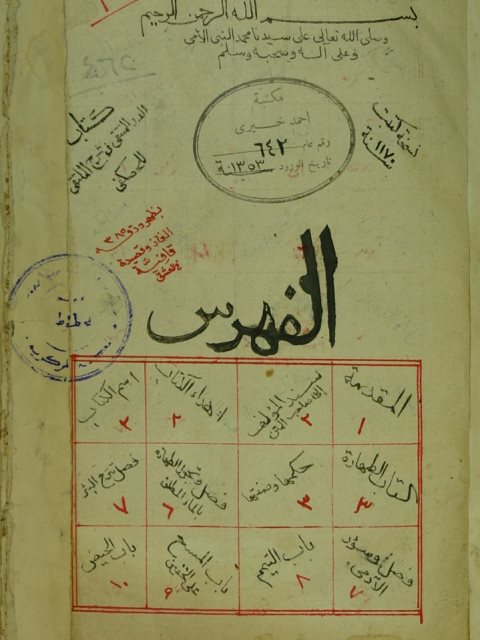 بسم الله الرحمن الرحيم
وصلى الله تعالى على سيدنا محمد النبي الأمي
وعلى آله وصحبه وسلم
كتاب
الدر المنتقى في شرح الملتقى
للحصكفي
مكتبة
احمد خيري
رقم عام ٦٤٢
تاريخ الورود سنة ١٣٥٣
نسخة كتبت
سنة ١١٧٠
بظهر ورقة ٣٨٥
الغاز وقصيدة
الفهرس
المقدمة
١
سند المؤلف
الى صاحب المتن
٢
اهداء الكتاب
٢
اسم الكتاب
٢
كتاب الطهارة
٣
حكمها وصفتها
٣
فصل وتجوز الطهارة
بالماء المطلق
٦
فصل تنزح البئر
٧
فصل وسؤر
الآدمي
٧
باب التيمم
٨
باب المسح
على الخفين
٩
باب الحيض
١٠